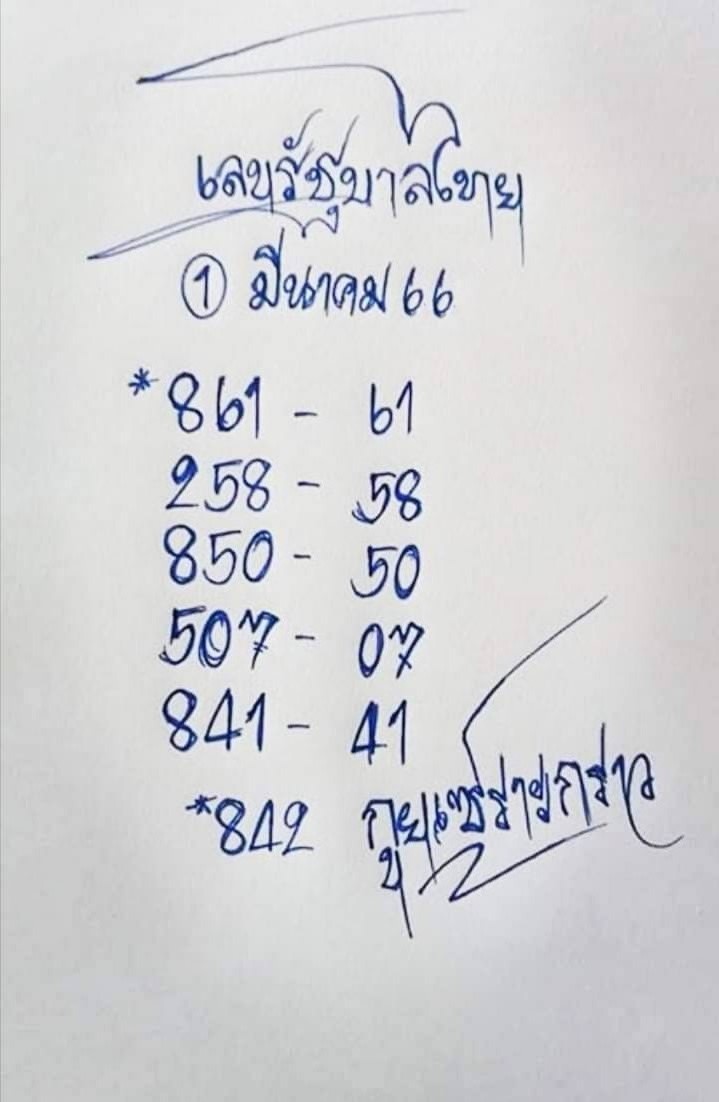 เลขรัฐบาลไทย
1 มีนาคม 66
*861 - 61
258 - 58
850 - 50
507 - 07
841 - 41
*842